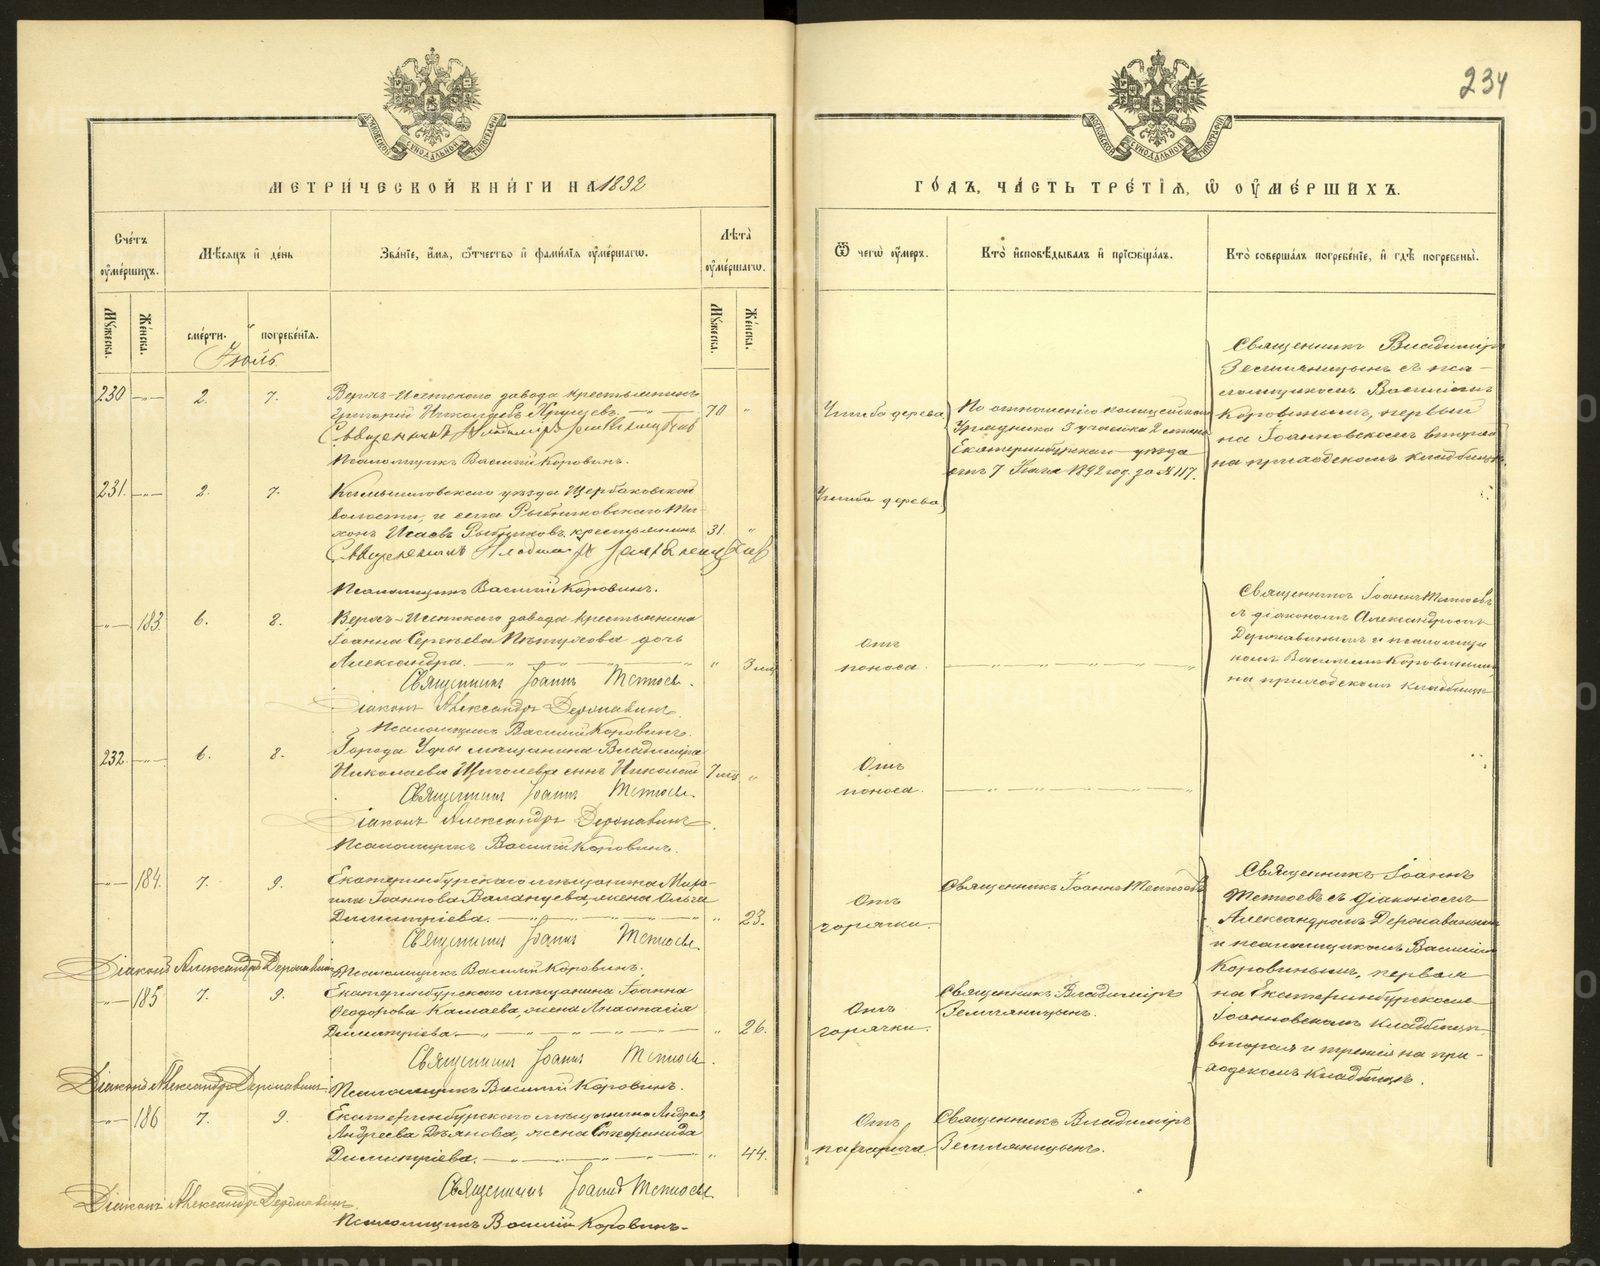 234
МЕТРИЧЕСКОЙ КНИГИ НА 1892
ГОДЪ, ЧАСТЬ ТРЕТІЯ, Ѡ ОУМЕРШИХЪ.
Счетъ оумершихъ.
Мѣсяцъ и день
Званіе, имя, ѿчество и фамилія оумершагѡ.
Лѣта оумершагѡ.
Ѿ чегѡ оумеръ.
Кто исповѣдывалъ и пріѡбщалъ.
Кто совершалъ погребеніе, и гдѣ погребены.
Мужеска.
Женска.
смерти.
погребенія.
Мужеска.
Женска.
Іюль
230 2. 7.
Верхъ-Исетскаго завода крестьянинъ
Григорій Николаевъ 70
Священникъ Владиміръ Земляницынъ
Псаломщикъ Василій Коровинъ.
Ушибъ дерева
По отношенію полицейскаго
Урядника 3 участка 2 стана
Екатеринбургскаго уѣзда
отъ 7 Іюля 1892 год. за № 117.
Священникъ Владиміръ
Земляницынъ съ пса-
ломщикомъ Василіемъ
Коровинымъ, первый
на Іоанновскомъ второй
на приходскомъ кладбищѣ.
231. 2. 7.
Камышловскаго уѣзда Щербаковской
волости, и села Рыбниковскаго Ти-
хонъ Исаевъ крестьянинъ 31
Священникъ Владиміръ Земляницынъ
Псаломщикъ Василій Коровинъ.
Ушибъ дерева
183. 6. 8.
Верхъ-Исетскаго завода крестьянина
Іоанна Сергѣева Пѣтухова дочь
Александра. 3 мѣс
Священникъ Іоаннъ
Діаконъ Александръ Державинъ.
Псаломщикъ Василій Коровинъ.
Отъ
поноса.
Священникъ Іоаннъ
съ діакономъ Александромъ
Державинымъ и псаломщи
комъ Василіемъ Коровинымъ
на приходскомъ кладбищѣ
232 6. 8.
Города Уфы мѣщанина Владиміра
Николаева Щеголева сынъ Николай 7 мѣс
Священникъ Іоаннъ
Діаконъ Александръ Державинъ.
Псаломщикъ Василій Коровинъ.
Отъ
поноса.
184. 7. 9.
Екатеринбургскаго мѣщанина Миха-
ила Іоаннова жена Ольга
Димитріева. 23.
Священникъ Іоаннъ
Діаконъ Александръ Державинъ
Псаломщикъ Василій Коровинъ.
Отъ
горячки.
Священникъ Іоаннъ
Священникъ Іоаннъ
съ діакономъ
Александромъ Державинымъ
и псаломщикомъ Василіемъ
Коровинымъ, первая
на Екатеринбургскомъ
Іоанновскомъ кладбищѣ
вторая и третія на при-
ходскомъ кладбищѣ.
185 7. 9.
Екатеринбургскаго мѣщанина Іоанна
Ѳеодорова Камаева, жена Анастасія
Димитріева. 26.
Священникъ Іоаннъ
Діаконъ Александръ Державинъ
Псаломщикъ Василій Коровинъ.
Отъ
горячки.
Священникъ Владиміръ
Земляницынъ.
186 7. 9.
Екатеринбургскаго мѣщанина Андрея
Андреева жена Стефанида
Димитріева. 44.
Священникъ Іоаннъ
Діаконъ Александръ Державинъ.
Псаломщикъ Василій Коровинъ.
Отъ
Священникъ Владиміръ
Земляницынъ.
METRIKI.GASO-URAL.RU